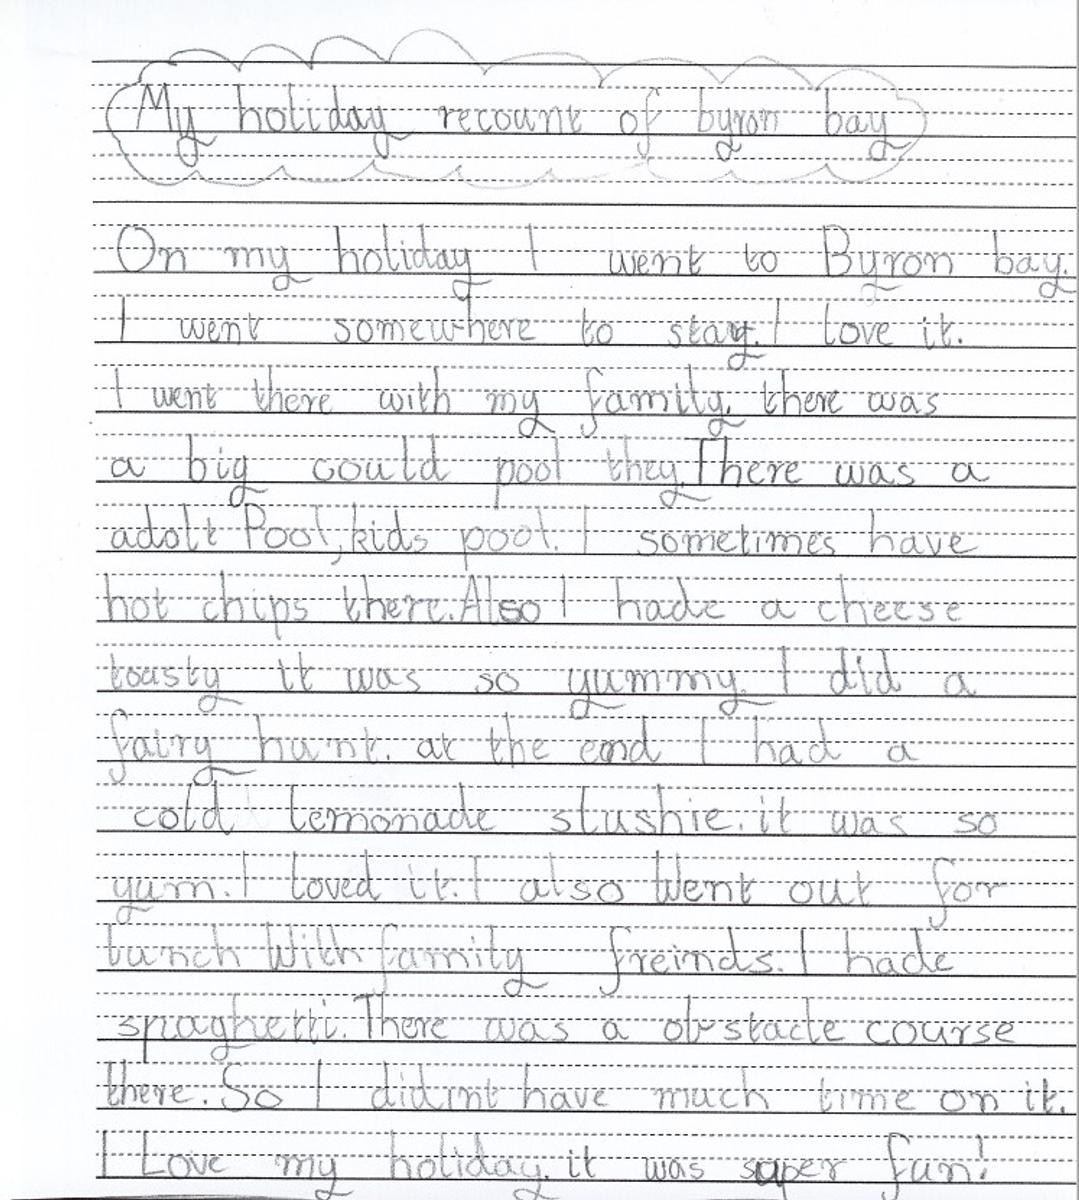 My holiday recount of byron bay
On my holiday I went to Byron bay.
I went somewhere to stay. I love it.
I went there with my family. there was
a big could pool they. There was a
adolt Pool, kids pool. I sometimes have
hot chips there. Also I hade a cheese
toasty it was so yummy. I did a
fairy hunt. at the end I had a
cold lemonade slushie. it was so
yum. I loved it. I also Went out for
lunch With family freinds. I hade
spaghetti. There was a obstacle course
there. So I didint have much time on it.
I Love my holiday. it was super fun!